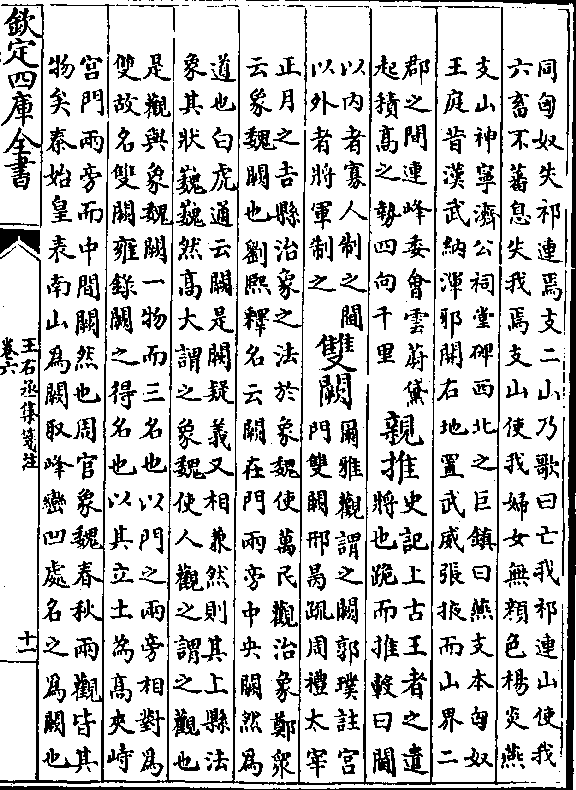 同匈奴失祁連焉支二山乃歌曰亡我祁連山使我
六畜不蕃息失我焉支山使我婦女無顏色楊炎燕
支山神寧濟公祠堂碑西北之巨鎮曰燕支本匈奴
王庭昔漢武納渾邪開右地置武威張掖而山界二
郡之間連峰委會雲蔚黛
起積高之勢四向千里
親推
史記上古王者之遣
將也跪而推轂曰閫
以內者寡人制之閫
以外者將軍制之
雙闕
爾雅觀謂之闕郭璞註宮
門雙闕邢昺疏周禮太宰
正月之吉縣治象之法於象魏使萬民觀治象鄭衆
云象魏闕也劉熙釋名云闕在門兩旁中央闕然為
道也白虎通云闕是闕疑義又相兼然則其上縣法
象其狀巍巍然高大謂之象魏使人觀之謂之觀也
是觀與象魏闕一物而三名也以門之兩旁相對為
雙故名雙闕雍錄闕之得名也以其立土為高夾峙
宮門兩旁而中間闕然也周官象魏春秋兩觀皆其
物矣秦始皇表南山為闕取峰巒凹處名之為闕也
欽定四庫全書
王右丞集箋注
卷六
十一